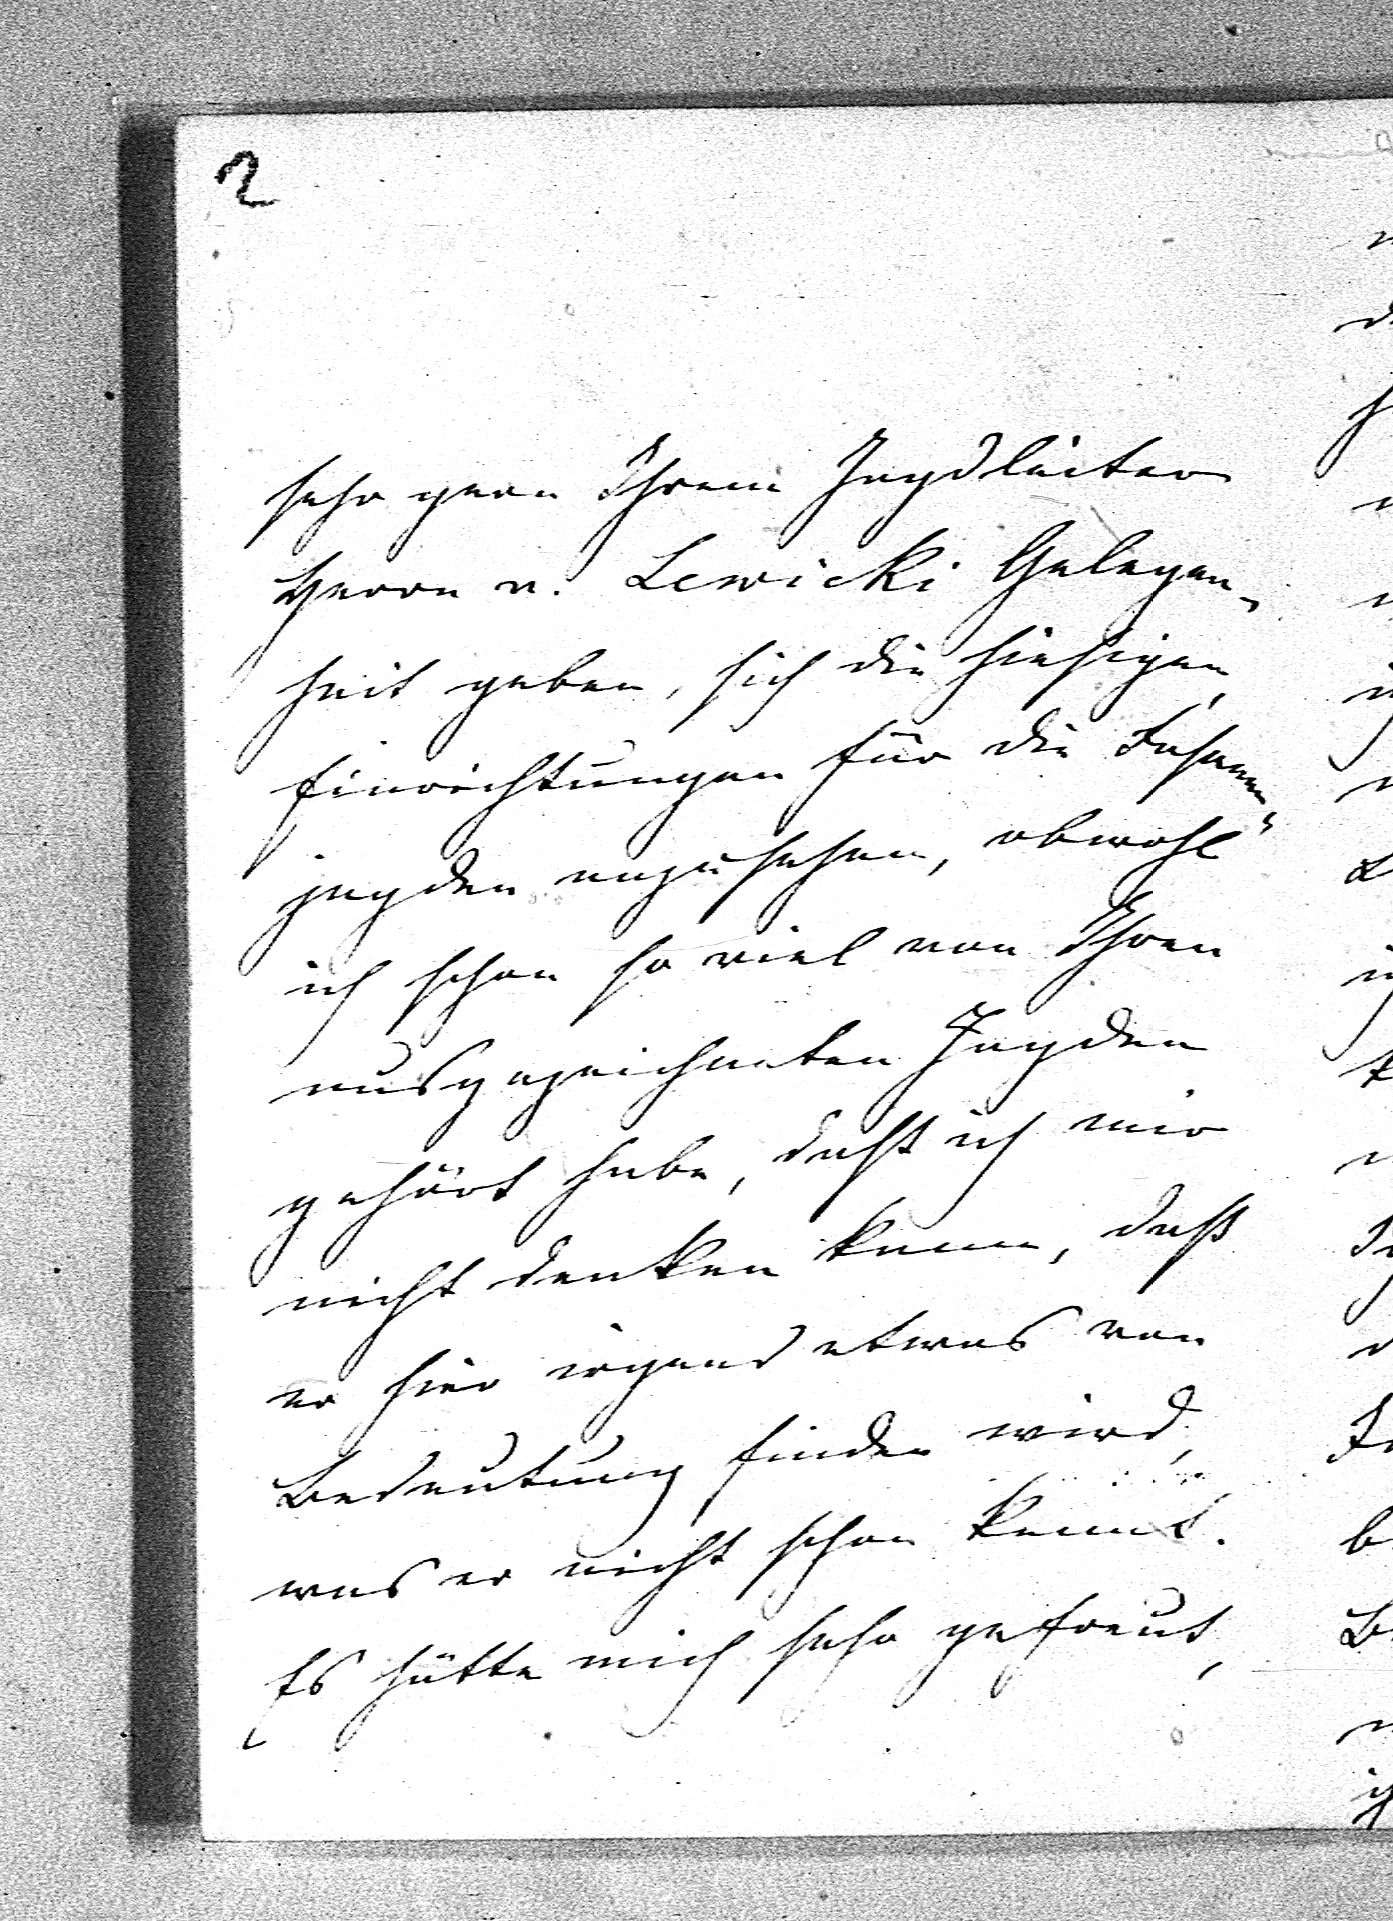 2
sehr gern Ihrem Jagdleiter
Herrn v. Lewicki Gelegen-
heit geben, sich die hiesigen
Einrichtungen für die Fasanen-
jagden anzusehen, obwohl
ich schon so viel von Ihren
ausgezeichneten Jagden
gehört habe, daß ich mir
nicht denken kann, daß
er hier irgend etwas von
Bedeutung finden wird,
was er nicht schon kennt.
Es hätte mich sehr gefreut,